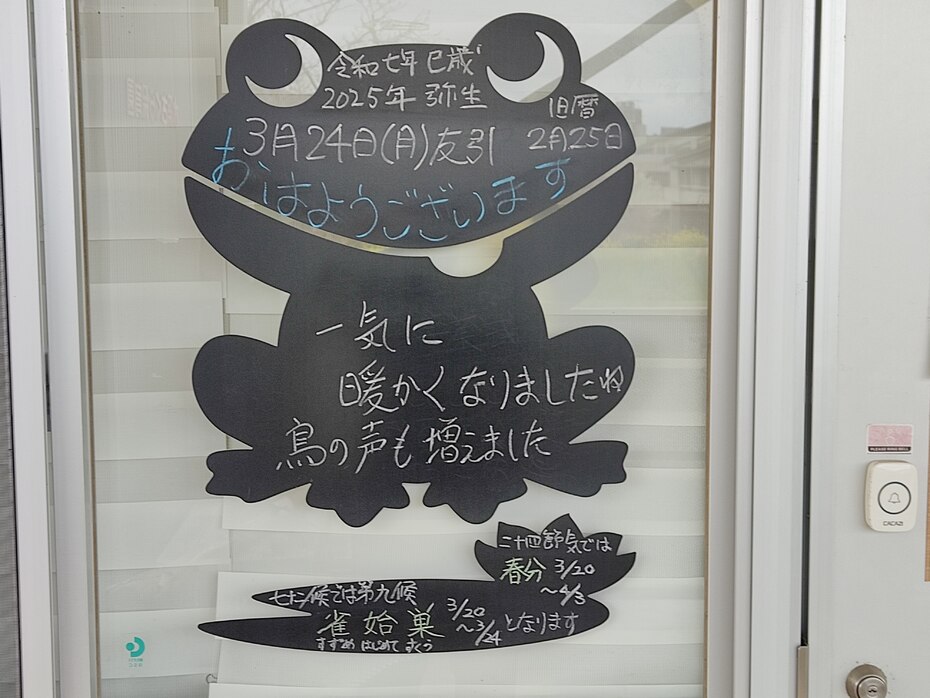 令和七年 巳歳
2025年 弥生
旧暦
3月24日(月)友引 2月25日
おはようございます
一気に
暖かくなりましたね
鳥の声も増えました
二十四節気では
春分 3/20
～4/3
七十二候では第九候
雀始巣 3/20～3/24 となります
すずめ はじめて すくう
PLEASE RING BELL
CACAZI